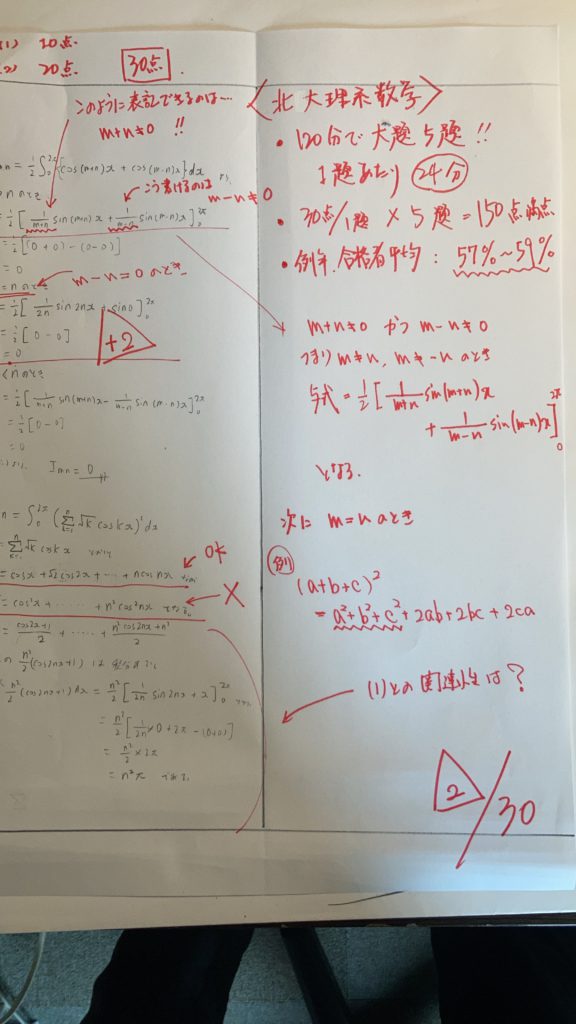 (1) 10点
(2) 20点 30点
このように表記できるのは…
m+n≠0 !!
mn = 1/2∫₀^2π{cos(m+n)x + cos(m-n)x}dx
こう書けるのは
m-n≠0
= 1/2[1/(m+n) sin(m+n)x + 1/(m-n) sin(m-n)x]₀^2π
= 1/2[(0+0)-(0-0)]
= 0
= nのとき
m-n=0 のとき
= 1/2[1/2n sin2nx + sin0]₀^2π
= 1/2[0-0]
= 0
+2
<nのとき
= 1/2[1/(m+n) sin(m+n)x - 1/(m-n) sin(m-n)x]₀^2π
= 1/2[0-0]
= 0
Jmn = 0
n = ∫₀^2π(Σ√k coskx)²dx
Σ√k coskx
OK
= cosx+√2cos2x+ … +
X
= cos²x+ …… + n²cos²nx
= (cos2x+1)/2 + …… + (n²cos2nx+n²)/2
n²/2(cos2nx+1)
n²/2(cos2nx+1)dx = n²/2[1/2n sin2nx + x]₀^2π
= n²/2[1/2n×0+2π-(0+0)]
= n²/2×2π
= n²π
〈北大理系数学〉
・120分で大題5題!!
1題あたり 24分
・30点/1題 × 5題 = 150点満点
・例年、合格者平均: 57%~59%
m+n≠0 かつ m-n≠0
つまり m≠n, m≠-n のとき
与式 = 1/2[1/(m+n) sin(m+n)x
+ 1/(m-n) sin(m-n)x]₀^2π
となる.
次に m=n のとき
例
(a+b+c)²
= a²+b²+c²+2ab+2bc+2ca
(1)との関連性は?
2/30